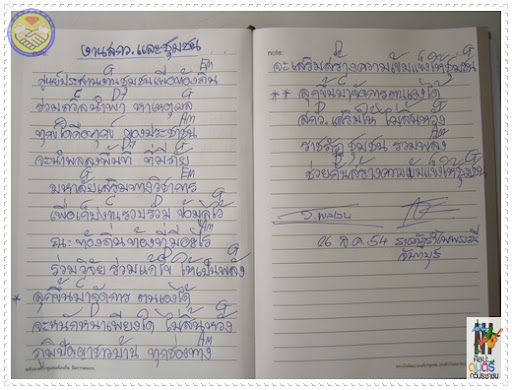 งานสกว. และชุมชน
G Em
ศูนย์ประสานงานชุมชนเพื่อท้องถิ่น
C D7 G
ร่วมสวัสดิ์ปัญหา หาเหตุผล
Am
ทุกข์ใดคือทุกข์ ของประชาชน
D7 G
จะนำพลลงพื้นที่ ที่มีภัย
G Em
มหาลัยเสริมทางวิชาการ
G
เพื่อเก็บงานรวบรวม ข้อมูลไว้
Am
ณ. ท้องถิ่น ท้องที่มีอะไร
G
ร่วมวิจัย ช่วยแก้ไข ให้เป็นพลัง
* ลุกขึ้นมาจัดการ ตนเองได้
G
จะหนักหนาเพียงใด ไม่สิ้นหวัง
Am
ภูมิปัญญาชาวบ้าน ทุกช่องทาง
note:
D G
จะเสริมสร้างความเข้มแข็งให้ชุมชน
** ลุกขึ้นมาจัดการตนเองได้
D G
สกว. เสริมให้ ไม่สิ้นหวัง
Am
ราชภัฏ ชุมชน รวมพลัง
G
ช่วยกันสร้างความเข้มแข็งให้ชุมชน
26 ก.ค. 54 ราชภัฏรำไพพรรณี
จันทบุรี
ศิลปะ
ดนตรี
กวีประชาชน